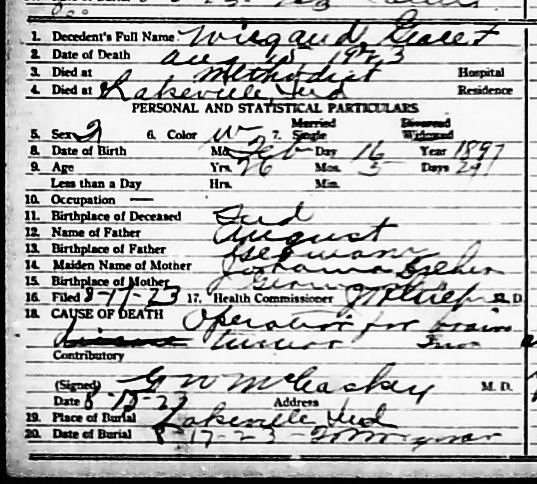 1. Decedent's Full Name Wiegand Grace
2. Date of Death Aug 15 1923
3. Died at Methodist Hospital
4. Died at Lakeville, Ind Residence
PERSONAL AND STATISTICAL PARTICULARS
5. Sex 6. Color W 7. Married Single Divorced Widowed
8. Date of Birth Mo. Feb Day 16 Year 1897
9. Age Yrs. 26 Mos. 5 Days 29
Less than a Day Hrs. Min.
10. Occupation —
11. Birthplace of Deceased Ind
12. Name of Father August
13. Birthplace of Father Germany
14. Maiden Name of Mother
15. Birthplace of Mother Germany
16. Filed 8-17-23 17. Health Commissioner M. D.
18. CAUSE OF DEATH Operation for brain
tumor
Contributory
(Signed) G W McCaskey M. D.
Date 8-15-23 Address
19. Place of Burial Lakeville Ind
20. Date of Burial 8-17-23